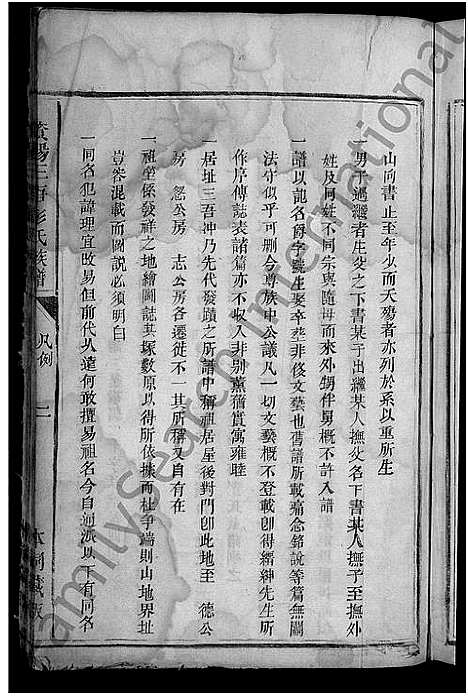 山向書止至年少而夭殤者亦列於系以重所生
一男子過繼者生父之下書某子出繼某人撫父名下書某人撫子至撫外
姓及同姓不同宗與隨母而來外甥伴男概不許入譜
一譜以龍名爵字號生娶卒塟非侈文藝也舊譜所載痛念銘說等篇無關
法守似乎可刪今尊族中公議凡一切文藝概不登載卽得縉紳先生所
作序傳誌表諸篇亦不収入非別薰蕕賞寓雍睦
一居址三吾冲乃先代發蹟之所譜中稱祖居屋後對門卽此地至 德公
房 恕公房 志公房各遷徙不一其所稽又自有在
一祖塋係發祥之地繪圖誌其塚數原以得所依據而杜爭端則山地界址
豈容混載而圖說必須明白
一同名犯諱理宜改易但前代人遠何敢擅易祖名今自通派以下有同名
三吾彭氏族譜
凡例
二
本祠藏版
FamilySearch International